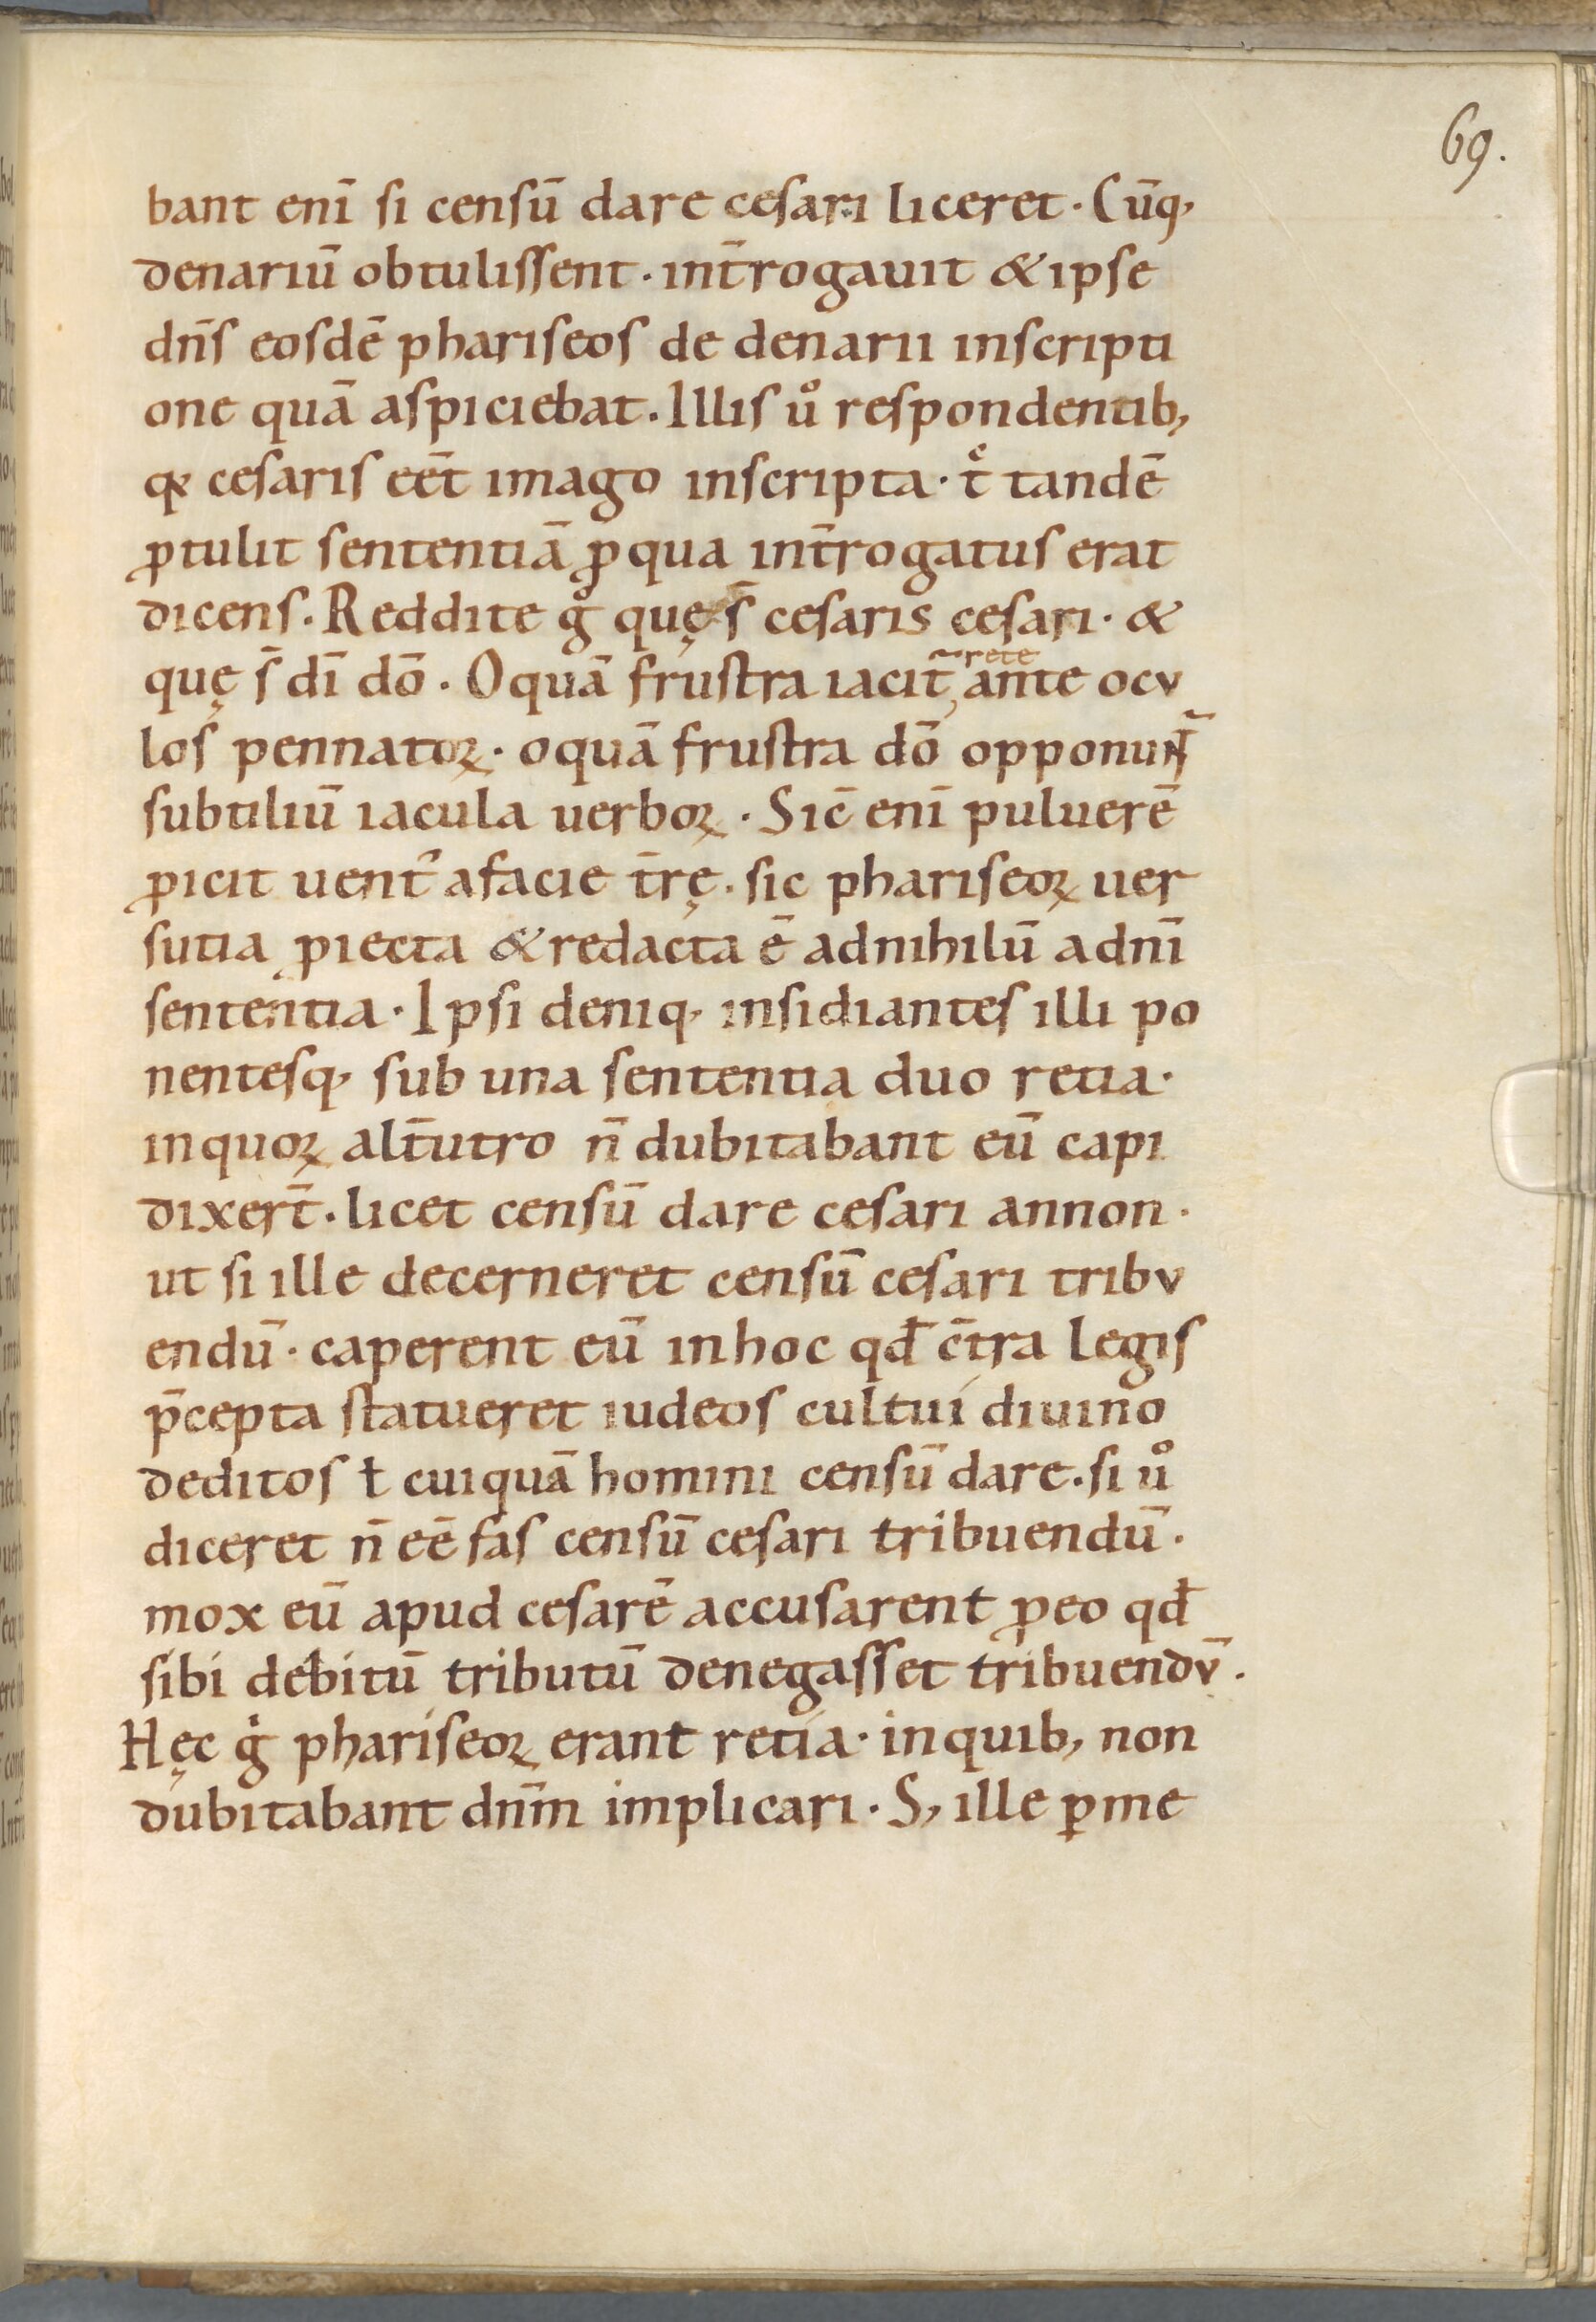 69.
bant enī si censū dare cesari liceret · Cūq,
denariū obtulissent · int̄rogauit & ipse
dn̄s eosdē phariseos de denarii inscripti
one quā aspiciebat. Illis uͦ respondentib,
qꝛ cesaris eēt imago inscripta · tͨ tandē
ꝓtulit sententiā ꝓ qua int̄rogatus erat
dicens. Reddite gͦ quę s̄ cesaris cesari · &
quę s̄ dī dō · O quā frustra iacit̄ rete ante ocu
los pennatoꝝ · o quā frustra dō opponunt̄
subtiliū iacula uerboꝝ · Sic̄ enī puluerē
ꝓicit uent᾽ a facie tr̄ę · sic phariseoꝝ uer
sutia ꝓiecta & redacta ē adnihilū a dnī
sententia · Ipsi deniq, insidiantes illi po
nentesq, sub una sententia duo retia ·
in quoꝝ alt̄utro n̄ dubitabant eū capi
dixer̄t · licet censū dare cesari annon ·
ut si ille decerneret censū cesari tribu
endū · caperent eū in hoc qđ c̄tra legis
p̄cepta statueret iudeos cultui diuino
deditos ł cuiquā homini censū dare · si uͦ
diceret n̄ eē fas censū cesari tribuendū ·
mox eū apud cesarē accusarent ꝓ eo qđ
sibi debitū tributū denegasset tribuendū ·
Hęc gͦ phariseoꝝ erant retia · in quib, non
dubitabant dnm̄ implicari · S, ille ꝑ me